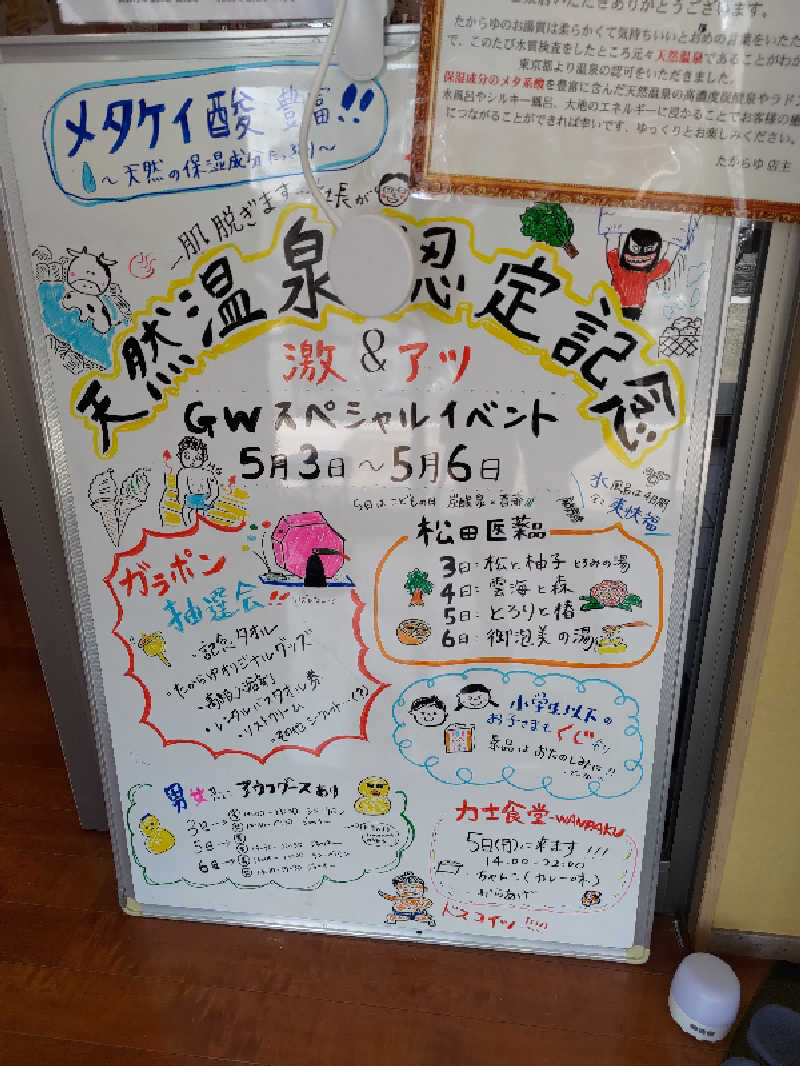 ただきありがとうございます。
たからゆのお湯質は柔らかくて気持ちいいとおめの言葉をいただ
で、このたび水質検査をしたところ元々天然温泉であることがわか
東京都より温泉の認可をいただきました。
保湿成分のメタ系酸を豊富に含んだ天然温泉の高濃度炭酸泉やラドン
水風呂やシルキー風呂、大地のエネルギーに浸かることでお客様の癒
につながることができれば幸いです、ゆっくりとお楽しみください。
たからゆ 店主
メタケイ酸 豊富!!
～天然の保湿成分たっぷり～
一肌脱ぎます…社長が
天然温泉認定記念
激&アツ
GWスペシャルイベント
5月3日～5月6日
5日はこどもの日 炭酸泉×菖蒲
水風呂は4日間
爽快
松田医薬品
3日:松と柚子 とろみの湯
4日:雲海と森
5日:とろりと椿
6日:御泡美の湯
ガラポン
抽選会!!
・記念タオル
・たからゆオリジナルグッズ
・レンタルバスタオル券
小学生以下の
お子さまも くじあり
景品はおたのしみに!!
男女 アウフグースあり
3日→
5日→
6日→
力士食堂-WANPAKU
5日(月)に来ます!!!
14:00-22:00
・ちゃんこ(カレー味、)
・からあげ
ドスコイッ